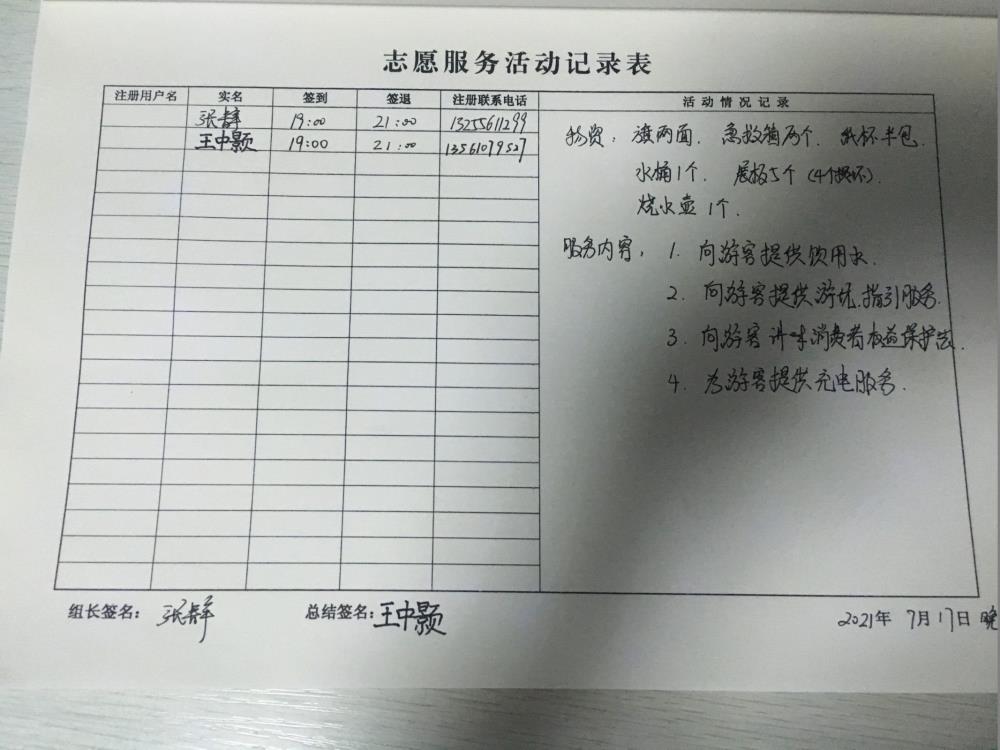 志愿服务活动记录表
注册用户名 实名 签到 签退 注册联系电话 活动情况记录
19:00 21:00 13255611299
王中颢 19:00 21:00 13561079527
物资：旗两面. 急救箱两个. 纸杯半包.
水桶1个. 展板5个(4个损坏).
烧水壶1个.
服务内容：1. 向游客提供饮用水.
2. 向游客提供游玩指引服务.
3. 向游客讲味消费者权益保护法.
4. 为游客提供充电服务.
组长签名： 总结签名：王中颢 2021年7月17日晚